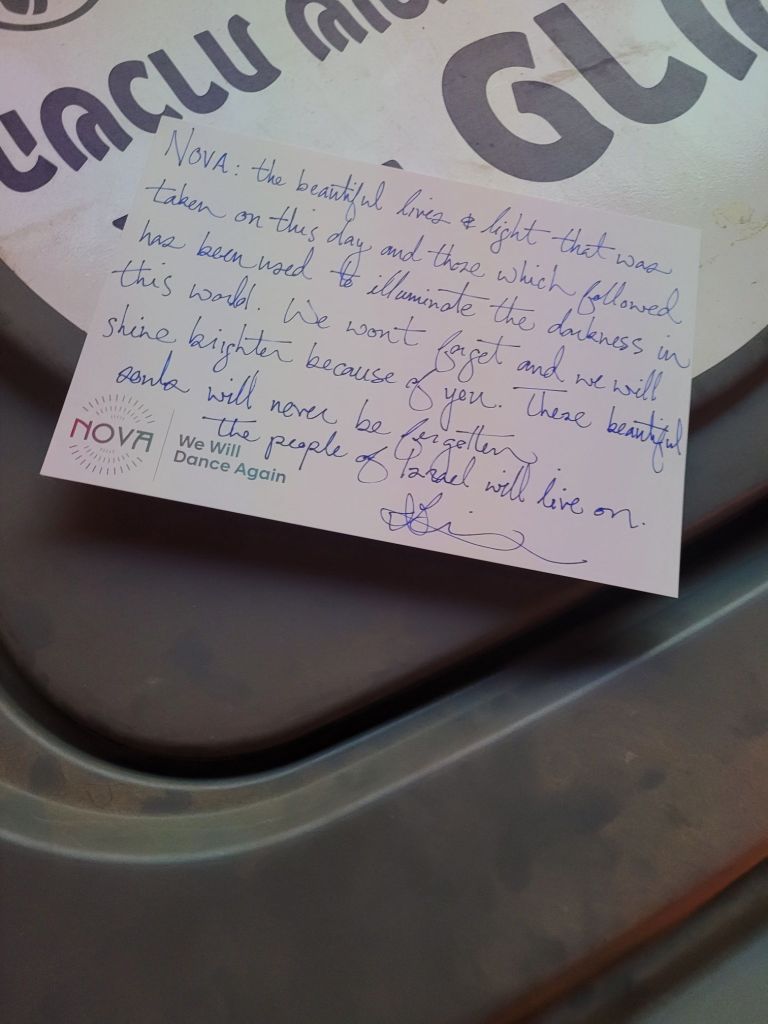 GL
NOVA: the beautiful lives & light that was
taken on this day and those which followed
has been used to illuminate the darkness in
this world. We won't forget and we will
shine brighter because of you. These beautiful
souls will never be forgotten,
the people of Israel will live on.
NOVA
We Will
Dance Again